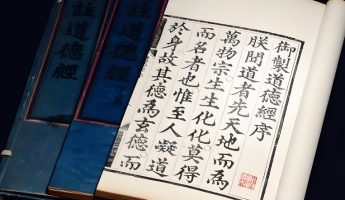 御製道德經序
朕聞道者先天地而為
萬物宗生生化化莫得
而名者也惟至人凝道
於身故其德為玄德而
註道德經
註道德經